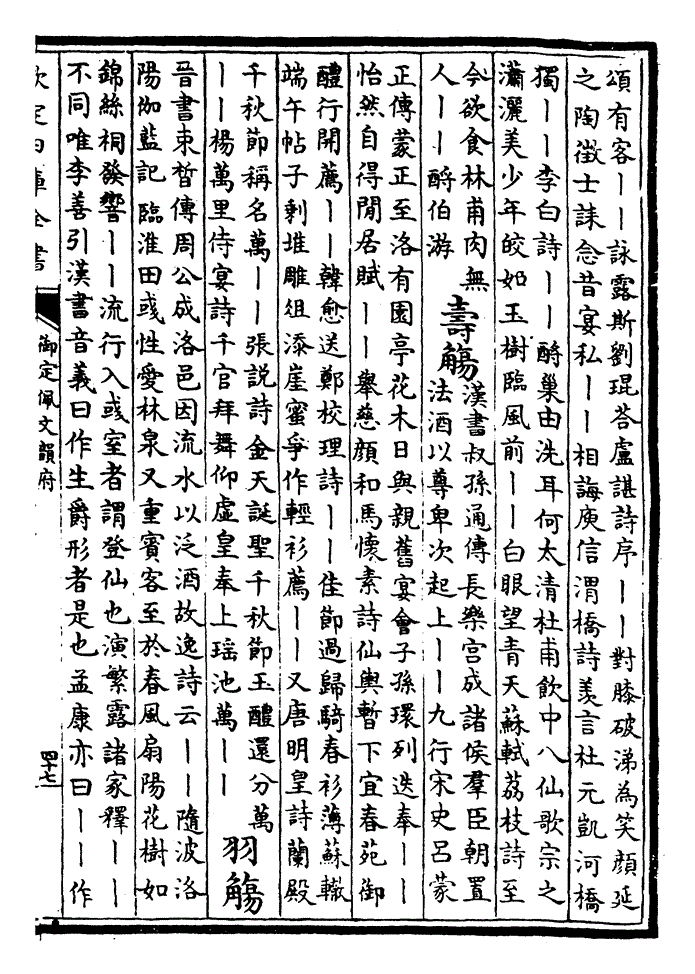 頌有客丨丨詠露斯劉琨荅盧諶詩序丨丨對膝破涕為笑顔延
之陶徵士誄念昔宴私丨丨相誨庾信渭橋詩羨言杜元凱河橋
獨丨丨李白詩丨丨酹巢由洗耳何太清杜甫飲中八仙歌宗之
瀟灑美少年皎如玉樹臨風前丨丨白眼望青天蘇軾荔枝詩至
今欲食林甫肉無
人丨丨酹伯游
壽觴
漢書叔孫通傳長樂宫成諸侯羣臣朝置
法酒以尊卑次起上丨丨九行宋史吕蒙
正傳蒙正至洛有園亭花木日與親舊宴會子孫環列迭奉丨丨
怡然自得閒居賦丨丨舉慈顔和馬懷素詩仙輿暫下宜春苑御
醴行開薦丨丨韓愈送鄭校理詩丨丨佳節過歸騎春衫薄蘇轍
端午帖子剩堆雕俎添崖蜜爭作輕衫薦丨丨又唐明皇詩蘭殿
千秋節稱名萬丨丨張説詩金天誕聖千秋節玉醴還分萬
丨丨楊萬里侍宴詩千官拜舞仰虛皇奉上瑶池萬丨丨
羽觴
晉書束晳傳周公成洛邑因流水以泛酒故逸詩云丨丨隨波洛
陽伽藍記臨淮田彧性愛林泉又重賓客至於春風扇陽花樹如
錦絲桐發響丨丨流行入彧室者謂登仙也演繁露諸家釋丨丨
不同唯李善引漢書音義曰作生爵形者是也孟康亦曰丨丨作
欽定四庫全書
御定佩文韻府
四十七